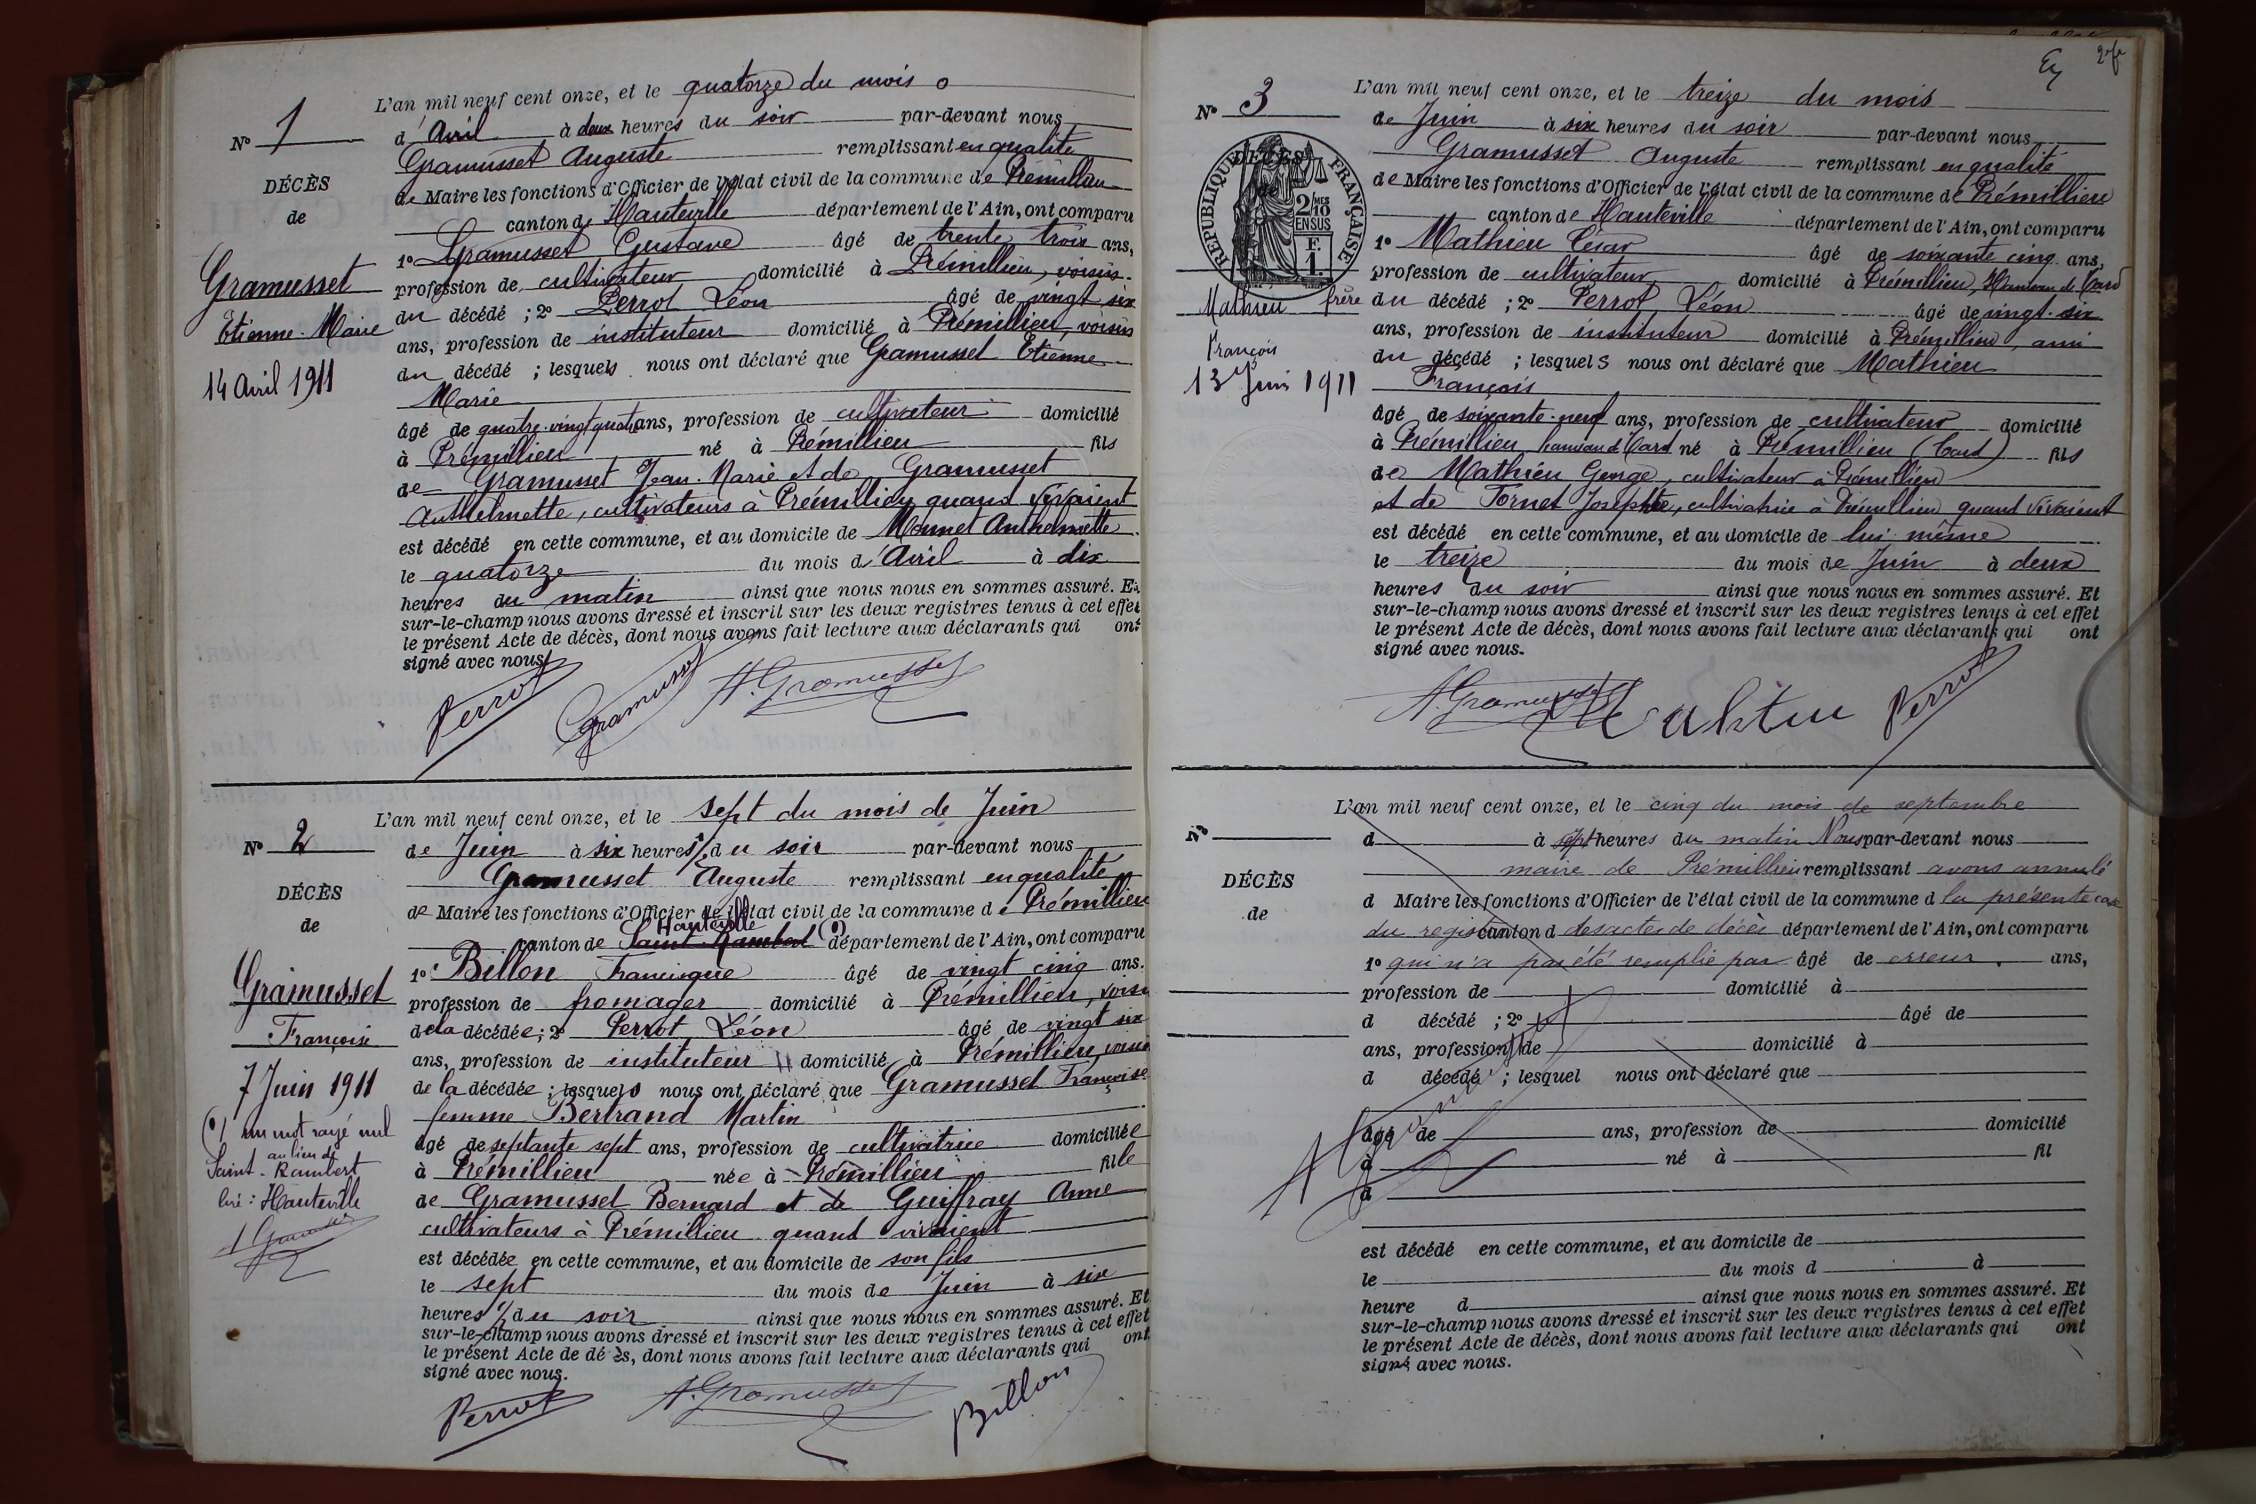 Nº 1
DÉCÈS
de
Gramusset
Etienne-Marie
14 Avril 1911
L'an mil neuf cent onze, et le quatorze du mois
d'Avril à deux heures du soir par-devant nous
Gramusset Auguste remplissant en qualité
de Maire les fonctions d'Officier de l'état civil de la commune de Prémillieu
canton de Hauteville département de l'Ain, ont comparu
1º Gramusset Gustave âgé de trente trois ans,
profession de cultivateur domicilié à Prémillieu, voisin
du décédé ; 2º Perrot Léon âgé de vingt six
ans, profession de instituteur domicilié à Prémillieu, voisin
du décédé ; lesquels nous ont déclaré que Gramusset Etienne
Marie
âgé de quatre-vingt quatre ans, profession de cultivateur domicilié
à Prémillieu né à Prémillieu fils
de Gramusset Jean-Marie et de Gramusset
Anthelmette, cultivateurs à Prémillieu quand vivaient
est décédé en cette commune, et au domicile de Monnet Anthelmette
le quatorze du mois d'Avril à dix
heures du matin ainsi que nous nous en sommes assuré. Et
sur-le-champ nous avons dressé et inscrit sur les deux registres tenus à cet effet
le présent Acte de décès, dont nous avons fait lecture aux déclarants qui ont
signé avec nous.
Perrot Gramusset A. Gramusset
Nº 2
DÉCÈS
de
Gramusset
Françoise
7 Juin 1911
(1) un mot rayé nul
au lieu de
Saint-Rambert
lire : Hauteville
A Gramusset
L'an mil neuf cent onze, et le sept du mois de Juin
de Juin à six heures 1/2 du soir par-devant nous
Gramusset Auguste remplissant en qualité
de Maire les fonctions d'Officier de l'état civil de la commune de Prémillieu
Hauteville
canton de Saint-Rambert (1) département de l'Ain, ont comparu
1º Billon Francisque âgé de vingt cinq ans.
profession de fromager domicilié à Prémillieu, voisin
de la décédée ; 2º Perrot Léon âgé de vingt six
ans, profession de instituteur domicilié à Prémillieu, voisin
de la décédée ; lesquels nous ont déclaré que Gramusset Françoise
femme Bertrand Martin
âgé de septante sept ans, profession de cultivatrice domiciliée
à Prémillieu née à Prémillieu fille
de Gramusset Bernard et de Guiffray Anne
cultivateurs à Prémillieu quand vivaient
est décédée en cette commune, et au domicile de son fils
le sept du mois de Juin à six
heures 1/2 du soir ainsi que nous nous en sommes assuré. Et
sur-le-champ nous avons dressé et inscrit sur les deux registres tenus à cet effet
le présent Acte de décès, dont nous avons fait lecture aux déclarants qui ont
signé avec nous.
Perrot A. Gramusset Billon
Nº 3
DÉCÈS
de
RÉPUBLIQUE FRANÇAISE
2 MES
10
EN SUS
F.
1.
Mathieu
François
13 Juin 1911
L'an mil neuf cent onze, et le treize du mois
de Juin à six heures du soir par-devant nous
Gramusset Auguste remplissant en qualité
de Maire les fonctions d'Officier de l'état civil de la commune de Prémillieu
canton de Hauteville département de l'Ain, ont comparu
1º Mathieu César âgé de soixante cinq ans,
profession de cultivateur domicilié à Prémillieu, Hameau de Card
frère du décédé ; 2º Perrot Léon âgé de vingt-six
ans, profession de instituteur domicilié à Prémillieu, ami
du décédé ; lesquels nous ont déclaré que Mathieu
François
âgé de soixante-neuf ans, profession de cultivateur domicilié
à Prémillieu hameau de Card né à Prémillieu (Card) fils
de Mathieu George, cultivateur à Prémillieu
et de Tornet Josephte, cultivatrice à Prémillieu quand vivaient
est décédé en cette commune, et au domicile de lui-même
le treize du mois de Juin à deux
heures du soir ainsi que nous nous en sommes assuré. Et
sur-le-champ nous avons dressé et inscrit sur les deux registres tenus à cet effet
le présent Acte de décès, dont nous avons fait lecture aux déclarants qui ont
signé avec nous.
A. Gramusset Mathieu Perrot
Nº
DÉCÈS
de
L'an mil neuf cent onze, et le cinq du mois de septembre
d à sept heures du matin Nous par-devant nous
maire de Prémillieu remplissant avons annulé
d Maire les fonctions d'Officier de l'état civil de la commune d la présente case
du registre canton d des actes de décès département de l'Ain, ont comparu
1º qui n'a pas été remplie par âgé de erreur. ans,
profession de domicilié à
d décédé ; 2º âgé de
ans, profession de domicilié à
d décédé ; lesquel nous ont déclaré que
âgé de ans, profession de domicilié
à né à fil
d
A Gramusset
est décédé en cette commune, et au domicile de
le du mois d à
heure d ainsi que nous nous en sommes assuré. Et
sur-le-champ nous avons dressé et inscrit sur les deux registres tenus à cet effet
le présent Acte de décès, dont nous avons fait lecture aux déclarants qui ont
signé avec nous.